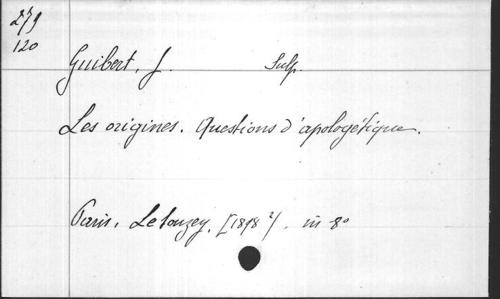 279
120
Guibert, J. Sulp.
Les origines. Questions d'apologétique.
Paris, Letouzey, [1898 ²]. in 8°